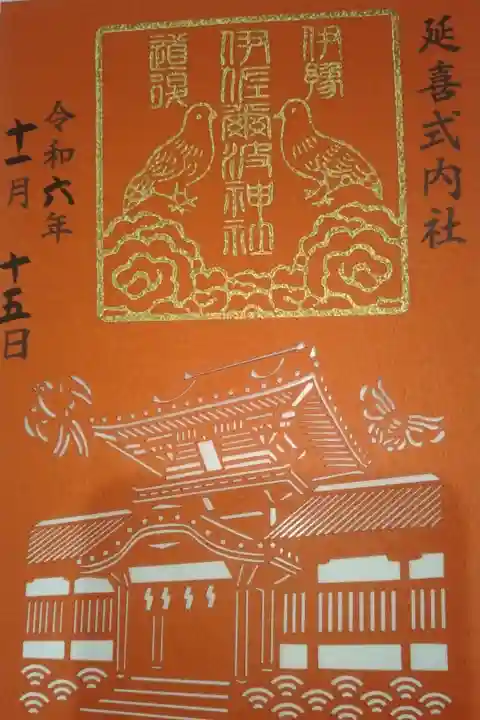 延喜式内社
伊豫
伊佐爾波神社
道後
令和六年
十一月 十五日